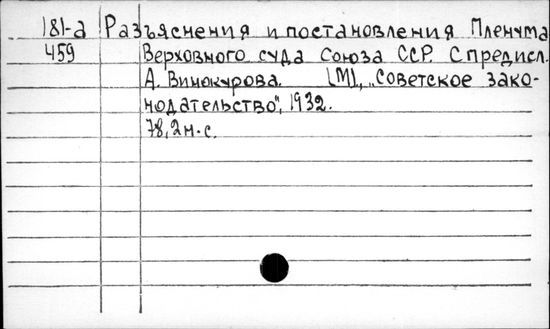 181-а Разъяснения и постановления Пленума
459 Верховного суда Союза ССР. С предисл.
А. Винокурова. [М], „Советское зако-
нодательство", 1932.
78, 2 н.с.